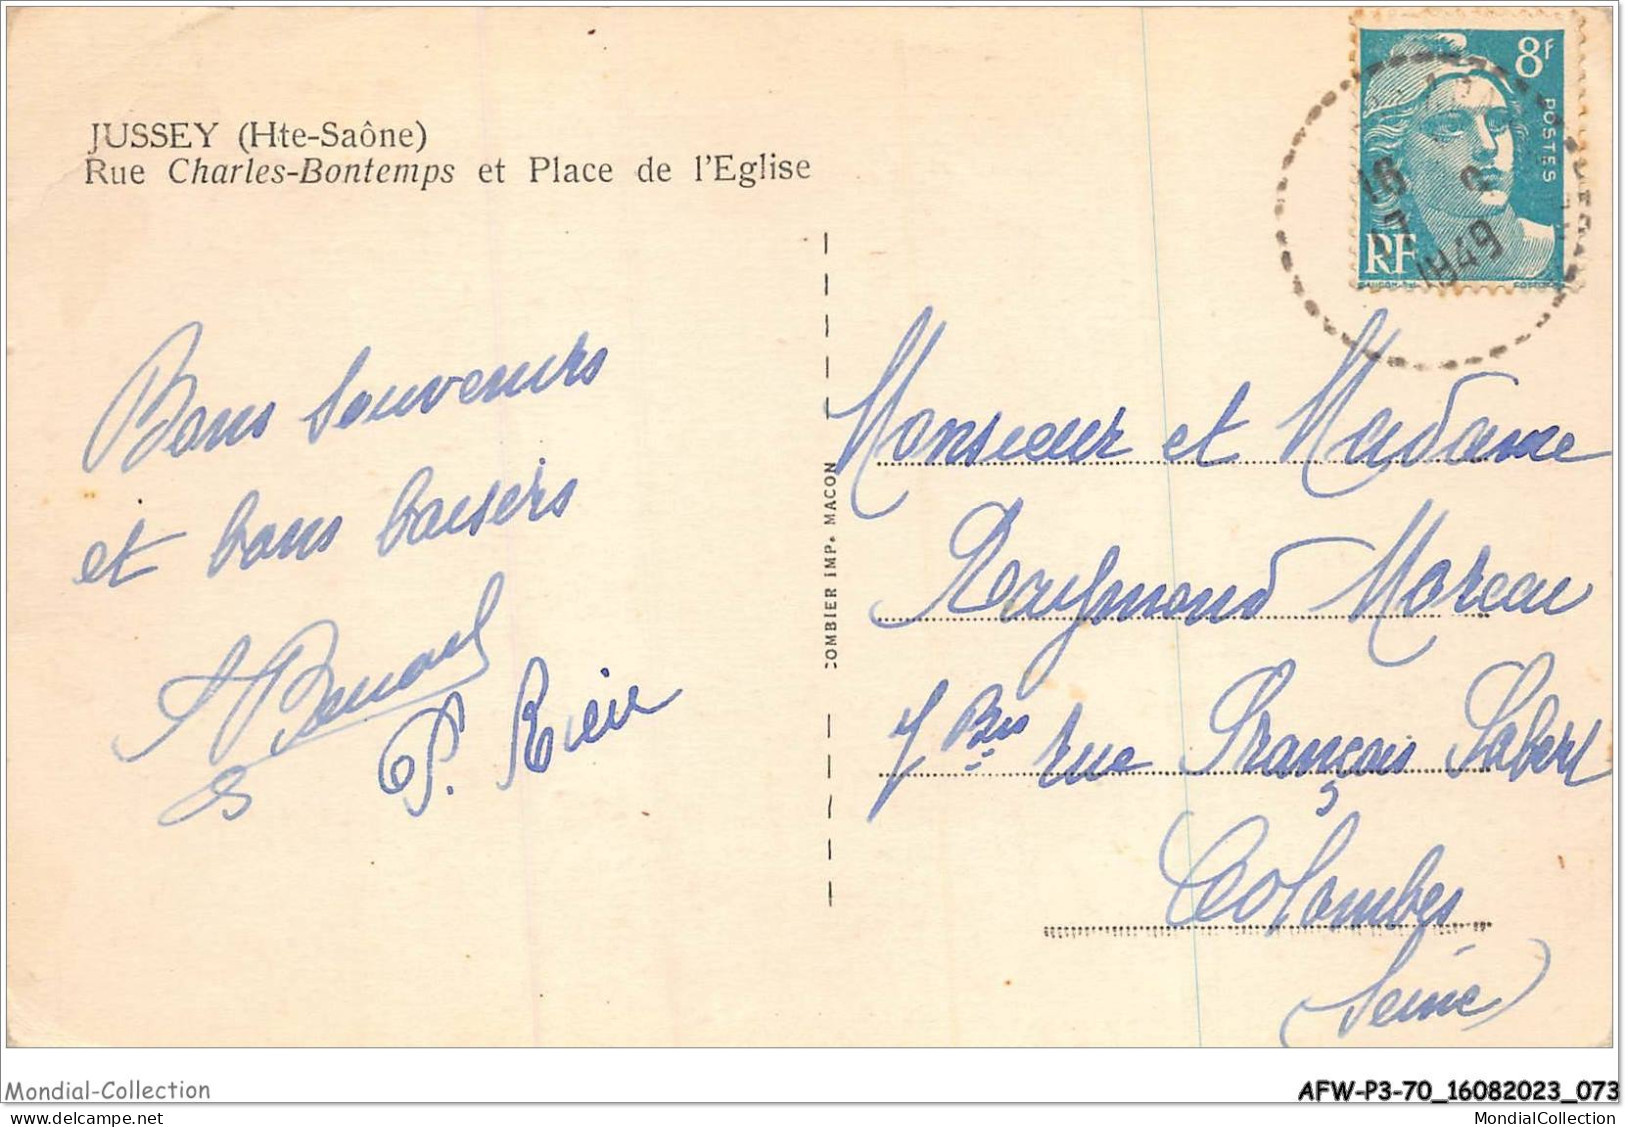 JUSSEY (Hte-Saône)
Rue Charles-Bontemps et Place de l'Eglise
8F
POSTES
RF
16
2
1949
Bons Souvenirs
et bons baisers
P. Rieu
COMBIER IMP. MACON
Monsieur et Madame
Raymond Moreau
7 Bis rue François Sabert
Colombes
(Seine)
Mondial-Collection
AFW-P3-70_16082023_073
MondialCollection